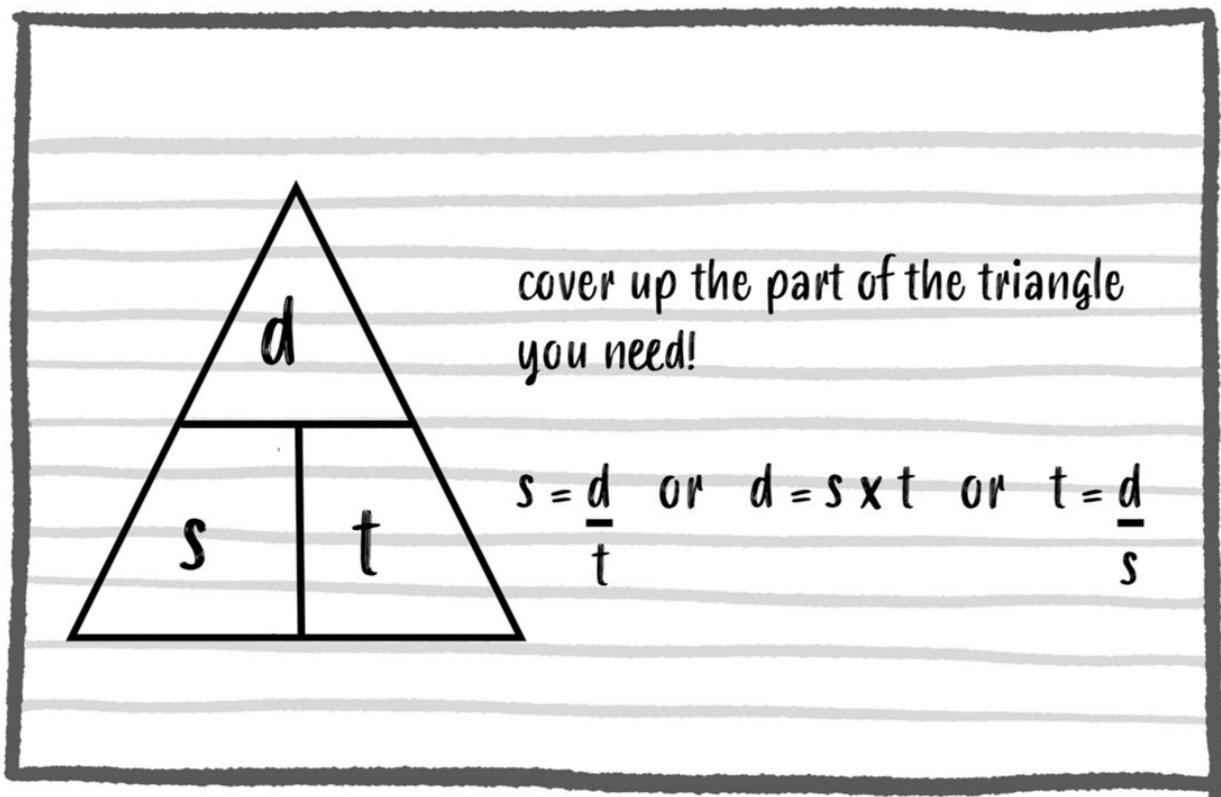 d
s t
cover up the part of the triangle
you need!
s = d/t or d = s x t or t = d/s